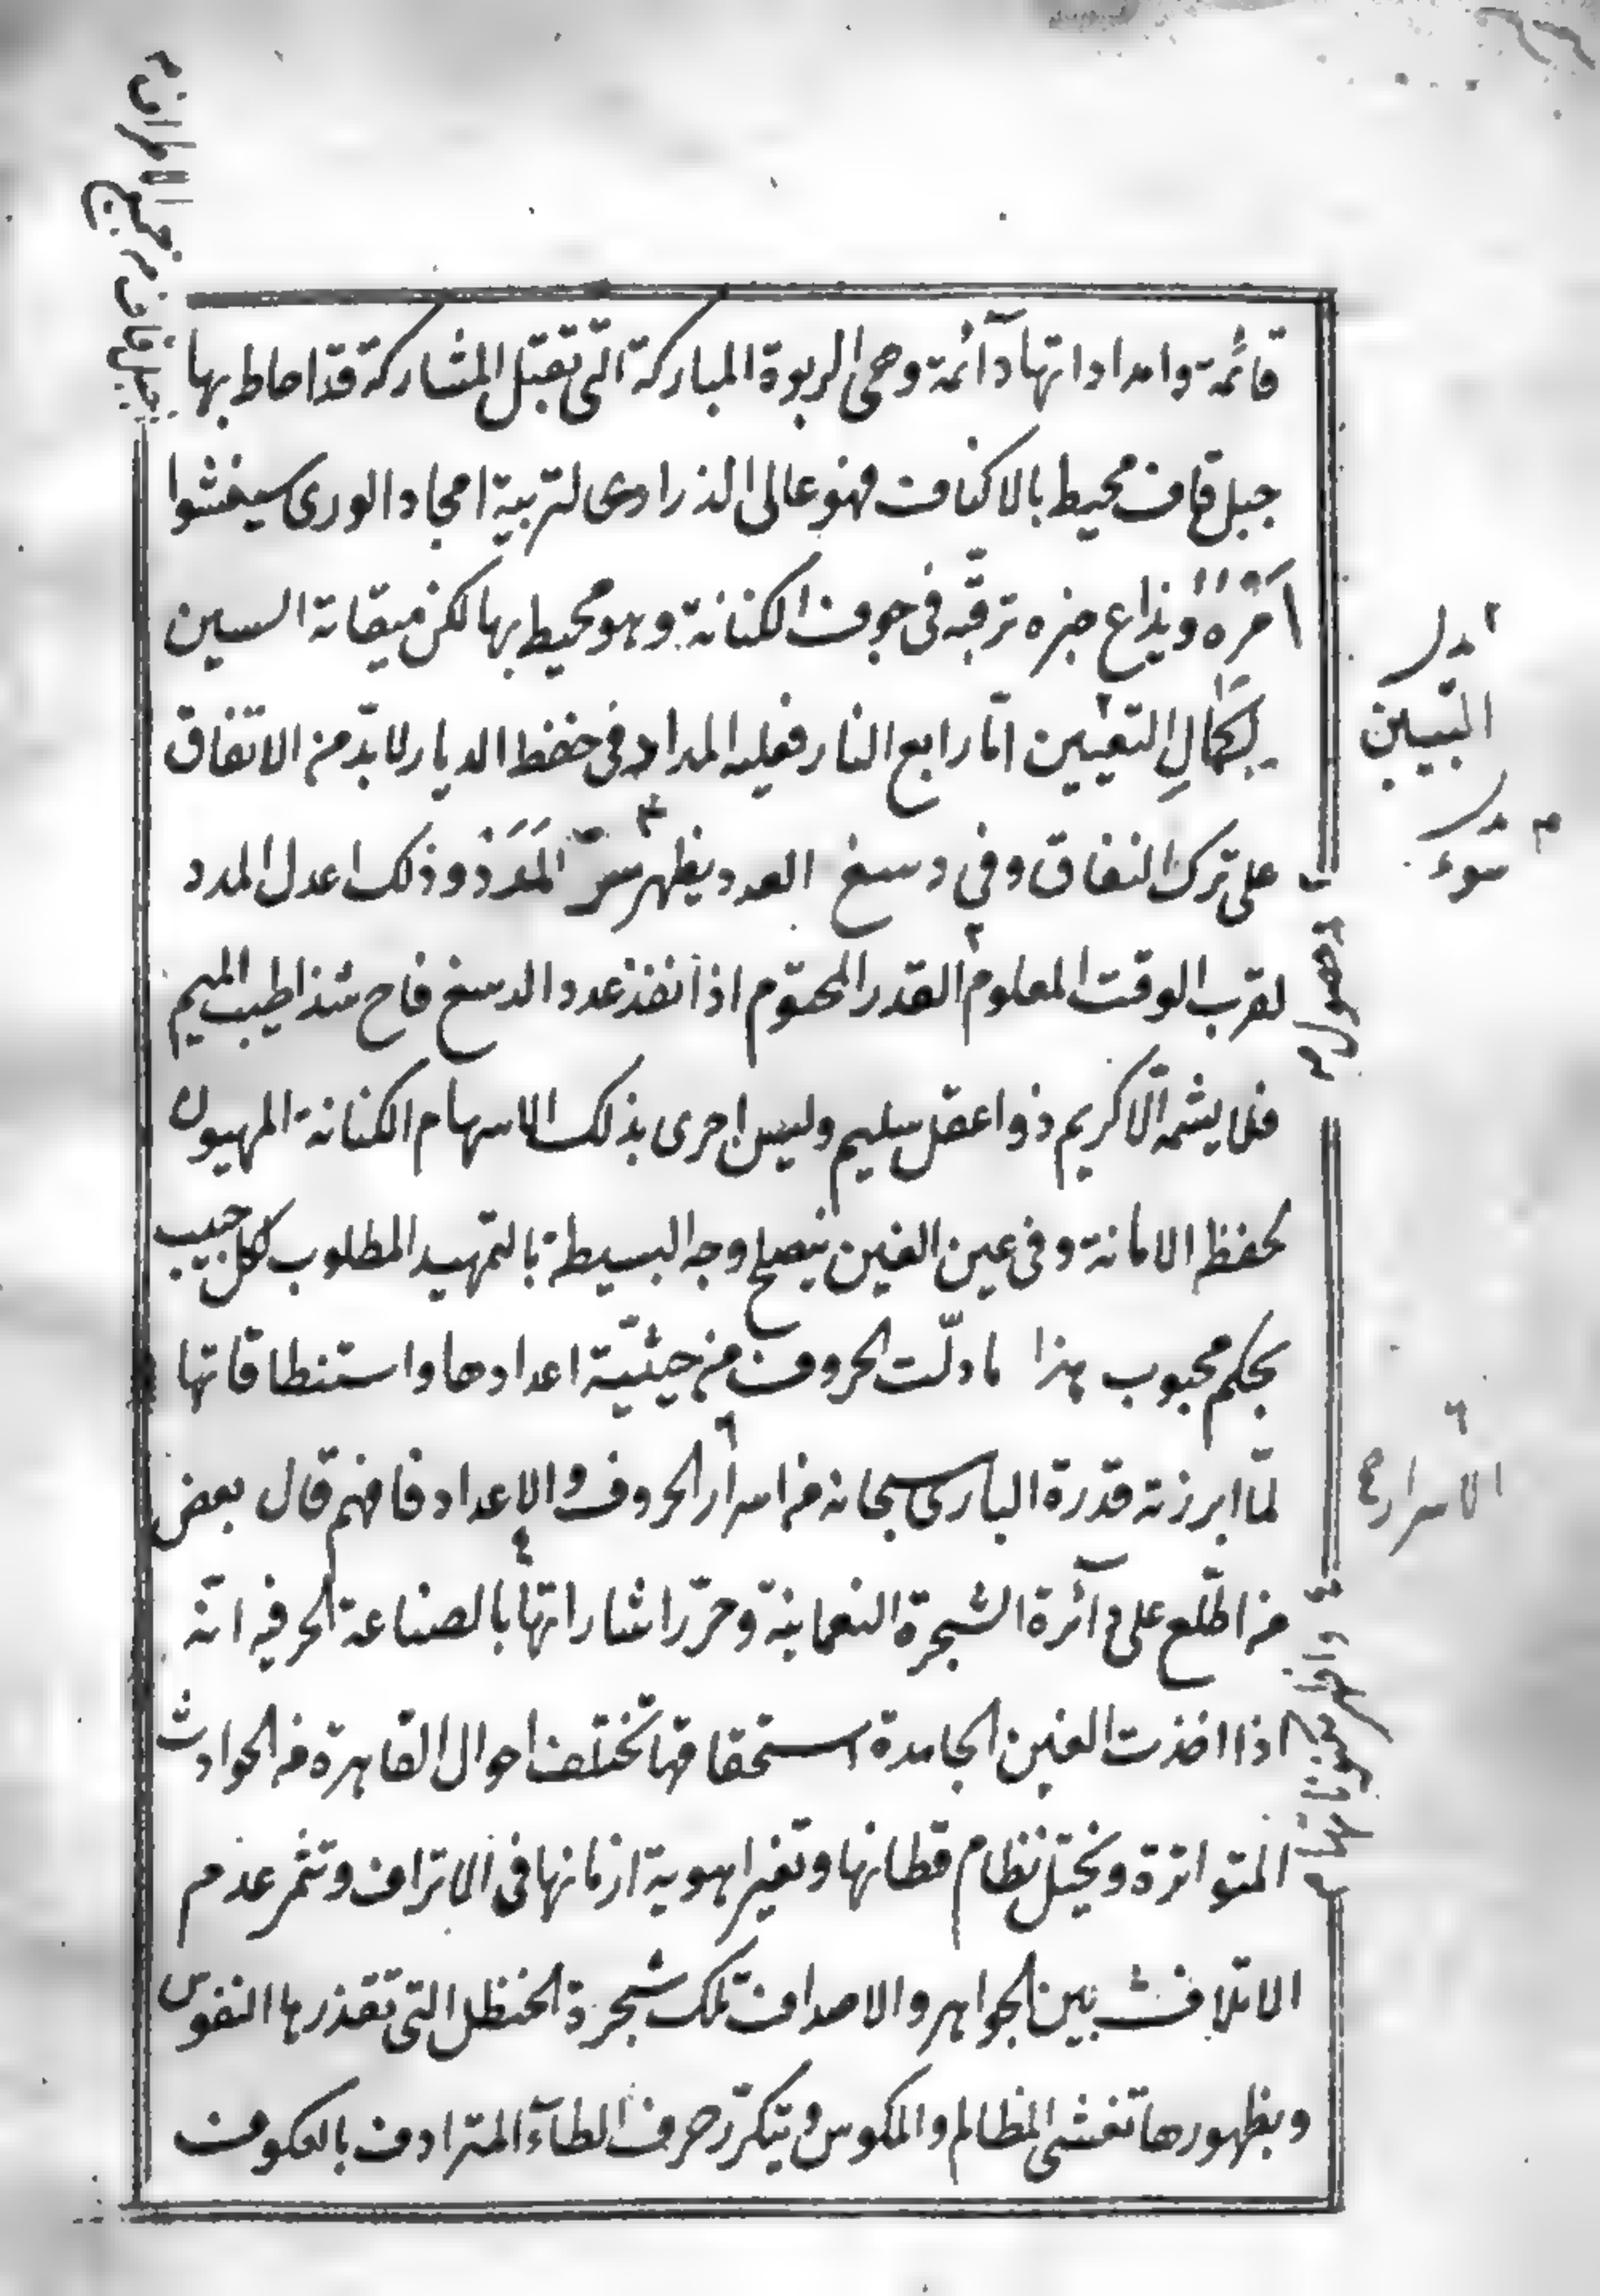 قائمة وامداداتها دآئمة وهى الربوة المباركة التى تقبل المشاركة قد احاط بها
جبل قاف محيط بالاكناف فهو عالى الذرا وى لتربية امجاد الورى سيفشوا
امره ويذاع خبره ترقبه فى جوف الكنانة وهو محيط بها لكن ميقاته السين
لكمال التعيين امّا رابع النار فعليه المدار فى حفظ الديار لا بدّ من الاتفاق
على ترك النفاق وفي دسغ العدد يظهر سرّ المدد وذلك اعدل المدد
لقرب الوقت المعلوم القدر المحتوم اذا نفذ عدد الدسغ فاح شذا طيب الميم
فلا يشمه الّا كريم ذوا عقل سليم وليس احرى بذلك الا سهام الكنانة المهيون
لحفظ الامانة وفى عين الغين ينصلح وجه البسيطة بالتمهيد المطلوب لكل حبيب
بحكم محبوب هذا ما دلّت الحروف من حيثيّة اعدادها واستنطاقاتها
لمّا ابرزته قدرة البارى سبحانه من اسرار الحروف والاعداد فافهم قال بعض
من اطّلع على دآئرة الشجرة النعمانية وحرّر اشاراتها بالصناعة الحرفيه انّه
اذا اخذت الغين الجامدة استحقاقها تختلف احوال القاهرة من الحوادث
المتواترة ويختل نظام قطانها وتغير اهوية ازمانها فى الاتراف وتثمر عدم
الائتلاف بين الجواهر والاصداف تلك شجرة الحنظل التى تقذرها النفوس
وبظهورها تفشى المظالم والمكوس ويتكرّر حرف الطآء المترادف بالعكوف
بدل
التبيين
بدل
سوء
الاسرار